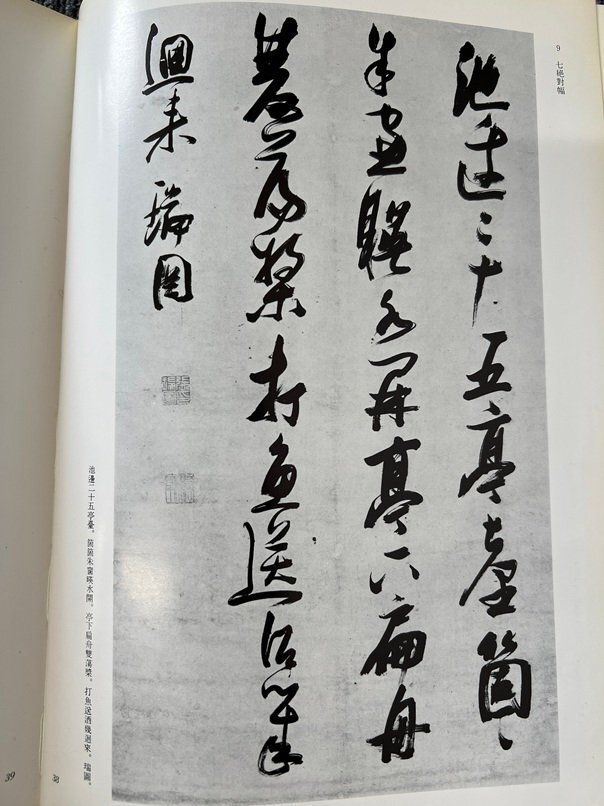 9 七絕對幅
池邊二十五亭臺箇〻
朱窗暎水開亭下扁舟
雙蕩槳打魚送酒幾
迴来 瑞圖
池邊二十五亭臺。箇箇朱窗暎水開。亭下扁舟雙蕩槳。打魚送酒幾迴來。瑞圖。
38
39